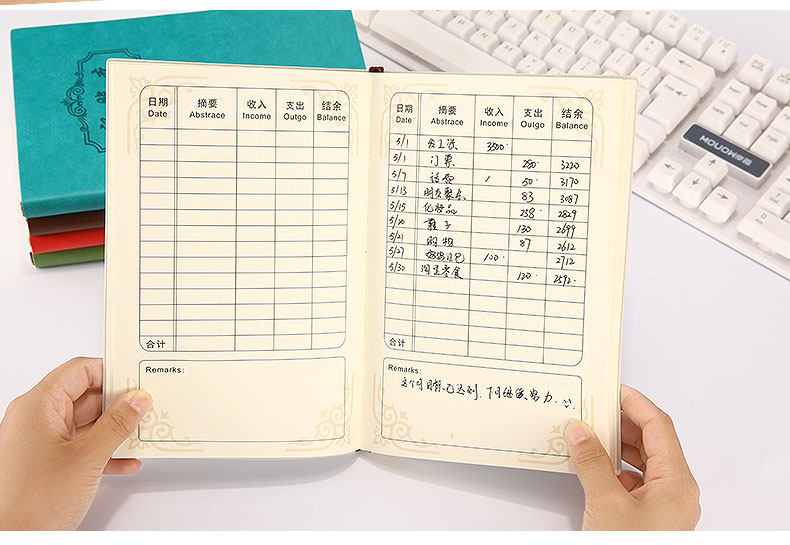 日期 摘要 收入 支出 结余
Date Abstrace Income Outgo Balance
合计
Remarks:
日期 摘要 收入 支出 结余
Date Abstrace Income Outgo Balance
5/1 工资 3500.
5/1 门票 280. 3220
5/7 话费 50. 3170
5/13 朋友聚餐 83 3087
5/15 化妆品 258. 2829
5/20 鞋子 130 2699
5/21 购物 87 2612
5/27 妈妈红包 100. 2712
5/30 淘宝零食 120. 2592.
合计
Remarks:
这个月目标已达到. 下月继续努力.